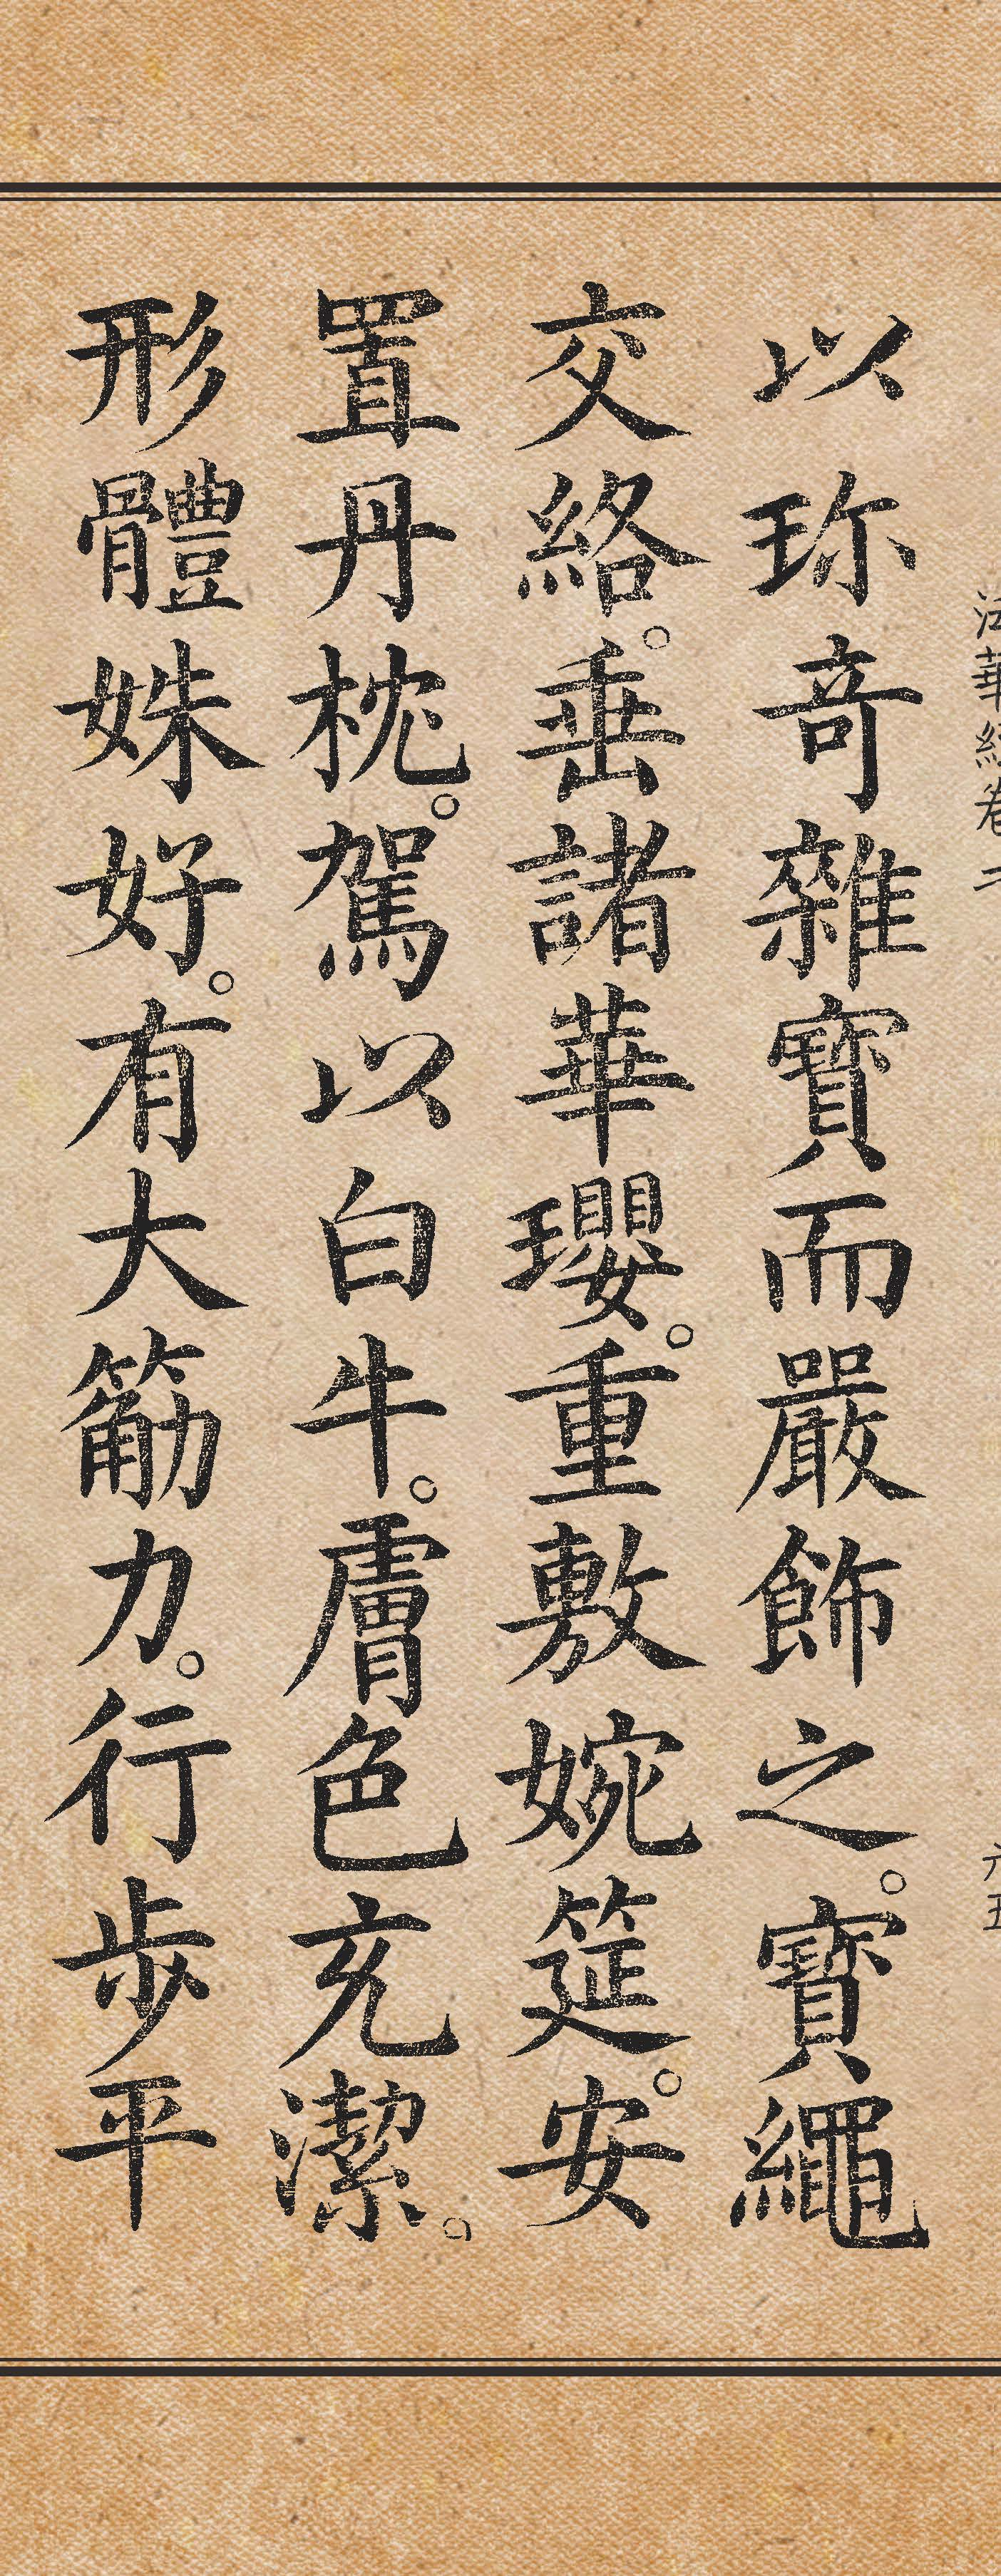 法華經卷二
六五
以珎奇雜寶而嚴飾之。寶繩
交絡。垂諸華瓔。重敷婉筵。安
置丹枕。駕以白牛。膚色充潔。
形體姝好。有大筋力。行步平